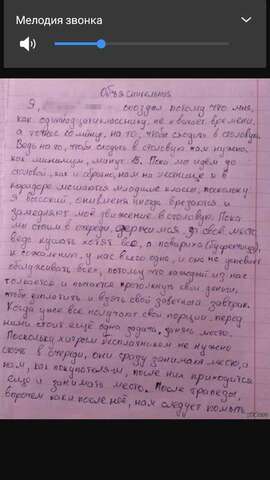 Мелодия звонка
Объяснительная
Я, опоздал потому что мне,
как одиннадцатикласснику, не хватает времени,
а точнее 10 минут, на то, чтобы сходить в столовую.
Ведь на то, чтобы сходить в столовую нам нужно,
как минимум, минут 15. Пока мы идём до
столовой, как и обратно, нам на лестнице и в
коридоре мешаются младшие классы, поскольку
я высокий, они в меня иногда врезаются и
замедляют моё движение в столовую. Пока
мы стоим в очереди, держимся за своё место,
ведь кушать хотят все, а повариха (буфетчица),
к сожалению, у нас всего одна, и она не успевает
обслуживать всех, потому что каждый из нас
толкается и пытается протолкнуть свои деньги,
чтобы заплатить и взять свой заветный завтрак.
Когда уже все получают свои порции, перед
нами стоит ещё одна задача, занять место.
Поскольку хитрым бесплатникам не нужно
стоять в очереди, они сразу занимают места, а
нам, как покупателям, после них приходится
ещё и занимать место. После трапезы,
впрочем как и после неё, нам следует помыть